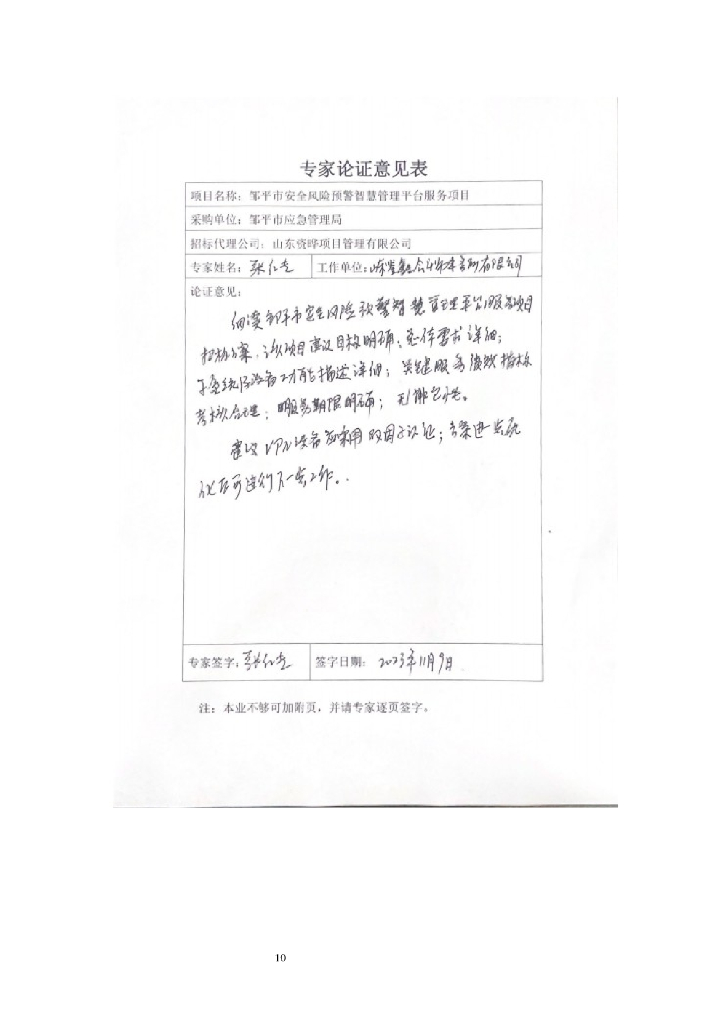 专家论证意见表
项目名称：邹平市安全风险预警智慧管理平台服务项目
采购单位：邹平市应急管理局
招标代理公司：山东资晔项目管理有限公司
专家姓名： 工作单位：
论证意见：
细读邹平市安全风险预警智慧管理平台服务项目
招标方案，该项目建设目标明确、总体需求详细；
子系统及设备功能描述详细；关键服务绩效指标
考核合理；服务期限明确；无排它性。
建议VPN设备应采用双因子认证；方案进
后可进行下一步工作。
专家签字： 签字日期：2023年11月9日
注：本业不够可加附页，并请专家逐页签字。
10